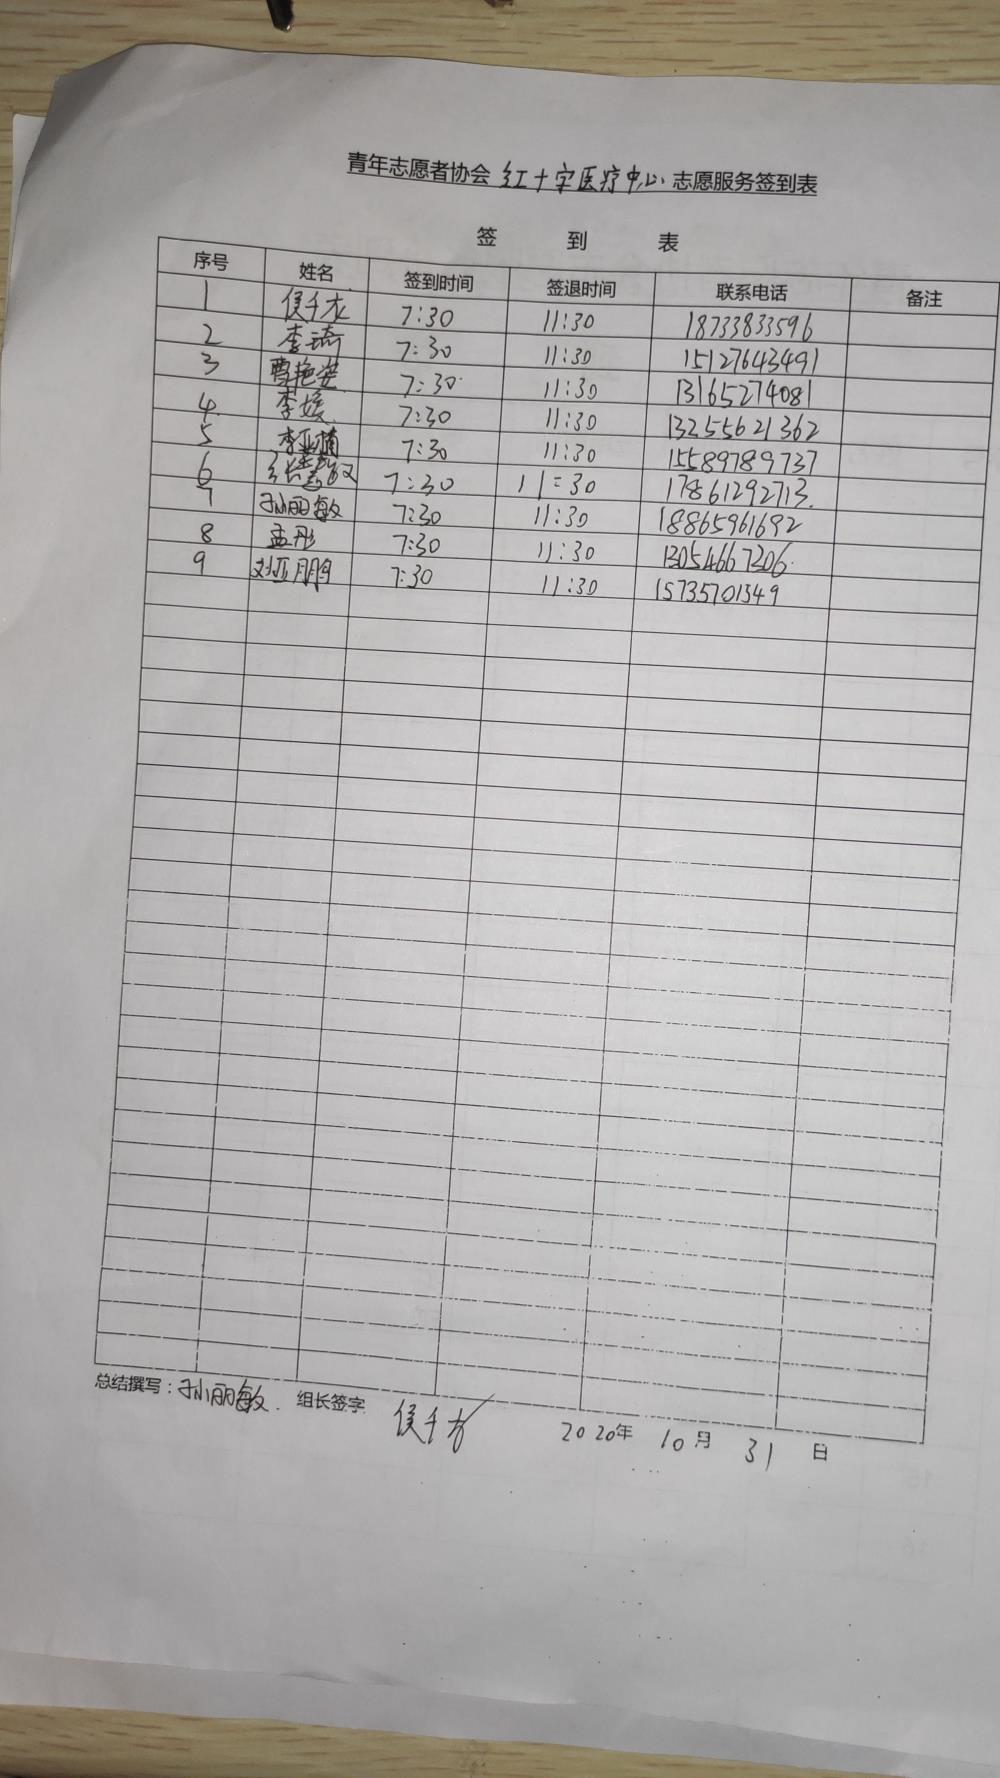 青年志愿者协会 红十字医疗中心 志愿服务签到表
签 到 表
序号 姓名 签到时间 签退时间 联系电话 备注
1 侯千龙 7:30 11:30 18733833596
2 李琦 7:30 11:30 15127643491
3 曹艳安 7:30 11:30 13165274081
4 李媛 7:30 11:30 13255621362
5 李亚楠 7:30 11:30 15589789737
6 张慧敏 7:30 11:30 17861292713
7 孙丽敏 7:30 11:30 18865961692
8 孟彤 7:30 11:30 13054667306
9 刘亚鹏 7:30 11:30 15735701549
总结撰写：孙丽敏 组长签字 侯千龙 2020年 10月 31日